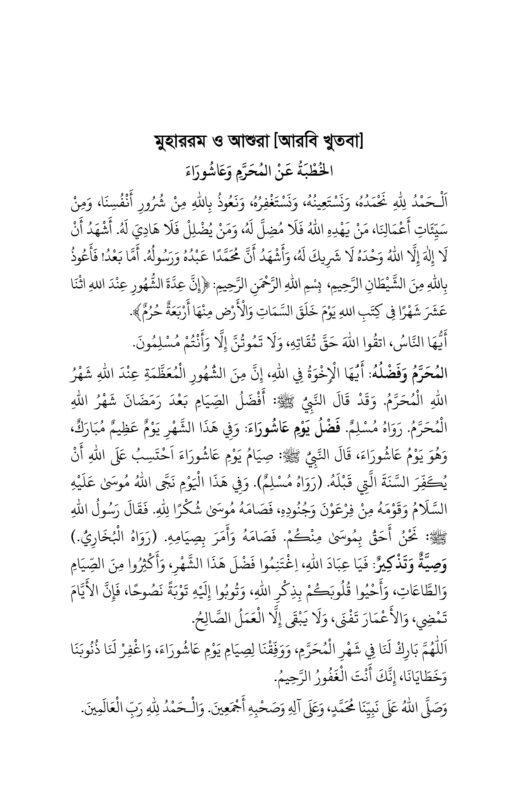 মুহাররম ও আশুরা [আরবি খুতবা]
الخُطْبَةُ عَنْ المُحَرَّمِ وَعَاشُورَاءَ
اَلْحَمْدُ لِلّٰهِ نَحْمَدُهُ، وَنَسْتَعِينُهُ، وَنَسْتَغْفِرُهُ، وَنَعُوذُ بِاللهِ مِنْ شُرُورِ أَنْفُسِنَا، وَمِنْ
سَيِّئَاتِ أَعْمَالِنَا، مَنْ يَهْدِهِ اللهُ فَلَا مُضِلَّ لَهُ، وَمَنْ يُضْلِلْ فَلَا هَادِيَ لَهُ. أَشْهَدُ أَنْ
لَا إِلٰهَ إِلَّا اللهُ وَحْدَهُ لَا شَرِيكَ لَهُ، وَأَشْهَدُ أَنَّ مُحَمَّدًا عَبْدُهُ وَرَسُولُهُ. أَمَّا بَعْدُ! فَأَعُوذُ
بِاللهِ مِنَ الشَّيْطَانِ الرَّجِيمِ، بِسْمِ اللهِ الرَّحْمَنِ الرَّحِيمِ: ﴿إِنَّ عِدَّةَ الشُّهُورِ عِنْدَ اللهِ اثْنَا
عَشَرَ شَهْرًا فِي كِتٰبِ اللهِ يَوْمَ خَلَقَ السَّمَاتِ وَالْأَرْضَ مِنْهَا أَرْبَعَةٌ حُرُمٌ﴾.
أَيُّهَا النَّاسُ، اتقُوا اللهَ حَقَّ تُقَاتِهِ، وَلَا تَمُوتُنَّ إِلَّا وَأَنْتُمْ مُسْلِمُونَ.
المُحَرَّمُ وَفَضْلُهُ: أَيُّهَا الْإِخْوَةُ فِي اللهِ، إِنَّ مِنَ الشُّهُورِ الْمُعَظَّمَةِ عِنْدَ اللهِ شَهْرُ
اللهِ الْمُحَرَّمُ. وَقَدْ قَالَ النَّبِيُّ ﷺ: أَفْضَلُ الصِّيَامِ بَعْدَ رَمَضَانَ شَهْرُ اللهِ
الْمُحَرَّمُ. رَوَاهُ مُسْلِمٌ. فَضْلُ يَوْمِ عَاشُورَاءَ: وَفِي هَذَا الشَّهْرِ يَوْمٌ عَظِيمٌ مُبَارَكٌ،
وَهُوَ يَوْمُ عَاشُورَاءَ، قَالَ النَّبِيُّ ﷺ: صِيَامُ يَوْمِ عَاشُورَاءَ اَحْتَسِبُ عَلَى اللهِ أَنْ
يُكَفِّرَ السَّنَةَ الَّتِي قَبْلَهُ. (رَوَاهُ مُسْلِمٌ). وَفِي هَذَا الْيَوْمِ نَجَّى اللهُ مُوسَى عَلَيْهِ
السَّلَامُ وَقَوْمَهُ مِنْ فِرْعَوْنَ وَجُنُودِهِ، فَصَامَهُ مُوسَى شُكْرًا لِلّٰهِ. فَقَالَ رَسُولُ اللهِ
ﷺ: نَحْنُ أَحَقُّ بِمُوسَى مِنْكُمْ. فَصَامَهُ وَأَمَرَ بِصِيَامِهِ. (رَوَاهُ الْبُخَارِيُّ.)
وَصِيَّةٌ وَتَذْكِيرٌ: فَيَا عِبَادَ اللهِ، اِغْتَنِمُوا فَضْلَ هَذَا الشَّهْرِ، وَأَكْثِرُوا مِنَ الصِّيَامِ
وَالطَّاعَاتِ، وَأَحْيُوا قُلُوبَكُمْ بِذِكْرِ اللهِ، وَتُوبُوا إِلَيْهِ تَوْبَةً نَصُوحًا، فَإِنَّ الأَيَّامَ
تَمْضِي، وَالأَعْمَارَ تَفْنَى، وَلَا يَبْقَى إِلَّا الْعَمَلُ الصَّالِحُ.
اَللّٰهُمَّ بَارِكْ لَنَا فِي شَهْرِ الْمُحَرَّمِ، وَوَفِّقْنَا لِصِيَامِ يَوْمِ عَاشُورَاءَ، وَاغْفِرْ لَنَا ذُنُوبَنَا
وَخَطَايَانَا، إِنَّكَ أَنْتَ الْغَفُورُ الرَّحِيمُ.
وَصَلَّى اللهُ عَلَى نَبِيِّنَا مُحَمَّدٍ، وَعَلَى آلِهِ وَصَحْبِهِ أَجْمَعِينَ. وَالْحَمْدُ لِلّٰهِ رَبِّ الْعَالَمِينَ.